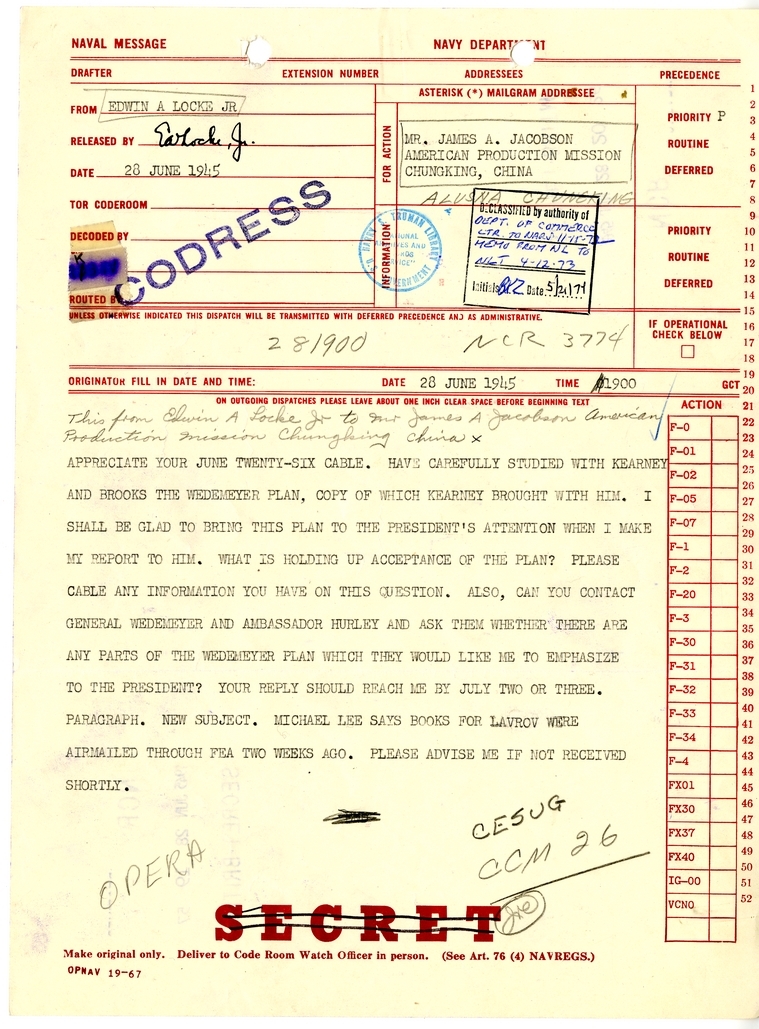 NAVAL MESSAGE
NAVY DEPARTMENT
DRAFTER
EXTENSION NUMBER
ADDRESSEES
PRECEDENCE
FROM EDWIN A LOCKE JR
RELEASED BY EALocke, Jr.
DATE 28 JUNE 1945
TOR CODEROOM
DECODED BY
ROUTED BY
CODRESS
ASTERISK (*) MAILGRAM ADDRESSEE
FOR ACTION
MR. JAMES A. JACOBSON
AMERICAN PRODUCTION MISSION
CHUNGKING, CHINA
ALUSNA CHUNGKING
INFORMATION
HARRY S. TRUMAN LIBRARY
U.S. GOVERNMENT
DECLASSIFIED by authority of
DEPT. OF COMMERCE
LTR. TO NARS
MEMO FROM NL TO
NLT 4-12-73
Initials Date 5/21/74
PRIORITY P
ROUTINE
DEFERRED
PRIORITY
ROUTINE
DEFERRED
UNLESS OTHERWISE INDICATED THIS DISPATCH WILL BE TRANSMITTED WITH DEFERRED PRECEDENCE AND AS ADMINISTRATIVE.
IF OPERATIONAL
CHECK BELOW
281900 NCR 3774
ORIGINATOR FILL IN DATE AND TIME: DATE 28 JUNE 1945 TIME 1900 GCT
ON OUTGOING DISPATCHES PLEASE LEAVE ABOUT ONE INCH CLEAR SPACE BEFORE BEGINNING TEXT
This from Edwin A Locke Jr to Mr James A Jacobson American
Production Mission Chungking China x
APPRECIATE YOUR JUNE TWENTY-SIX CABLE. HAVE CAREFULLY STUDIED WITH KEARNEY
AND BROOKS THE WEDEMEYER PLAN, COPY OF WHICH KEARNEY BROUGHT WITH HIM. I
SHALL BE GLAD TO BRING THIS PLAN TO THE PRESIDENT'S ATTENTION WHEN I MAKE
MY REPORT TO HIM. WHAT IS HOLDING UP ACCEPTANCE OF THE PLAN? PLEASE
CABLE ANY INFORMATION YOU HAVE ON THIS QUESTION. ALSO, CAN YOU CONTACT
GENERAL WEDEMEYER AND AMBASSADOR HURLEY AND ASK THEM WHETHER THERE ARE
ANY PARTS OF THE WEDEMEYER PLAN WHICH THEY WOULD LIKE ME TO EMPHASIZE
TO THE PRESIDENT? YOUR REPLY SHOULD REACH ME BY JULY TWO OR THREE.
PARAGRAPH. NEW SUBJECT. MICHAEL LEE SAYS BOOKS FOR LAVROV WERE
AIRMAILED THROUGH FEA TWO WEEKS AGO. PLEASE ADVISE ME IF NOT RECEIVED
SHORTLY.
OPERA
CESUG
CCM 26
SECRET
Make original only. Deliver to Code Room Watch Officer in person. (See Art. 76 (4) NAVREGS.)
OPNAV 19-67
ACTION
F-0
F-01
F-02
F-05
F-07
F-1
F-2
F-20
F-3
F-30
F-31
F-32
F-33
F-34
F-4
FX01
FX30
FX37
FX40
IG-00
VCNO
1
2
3
4
5
6
7
8
9
10
11
12
13
14
15
16
17
18
19
20
21
22
23
24
25
26
27
28
29
30
31
32
33
34
35
36
37
38
39
40
41
42
43
44
45
46
47
48
49
50
51
52